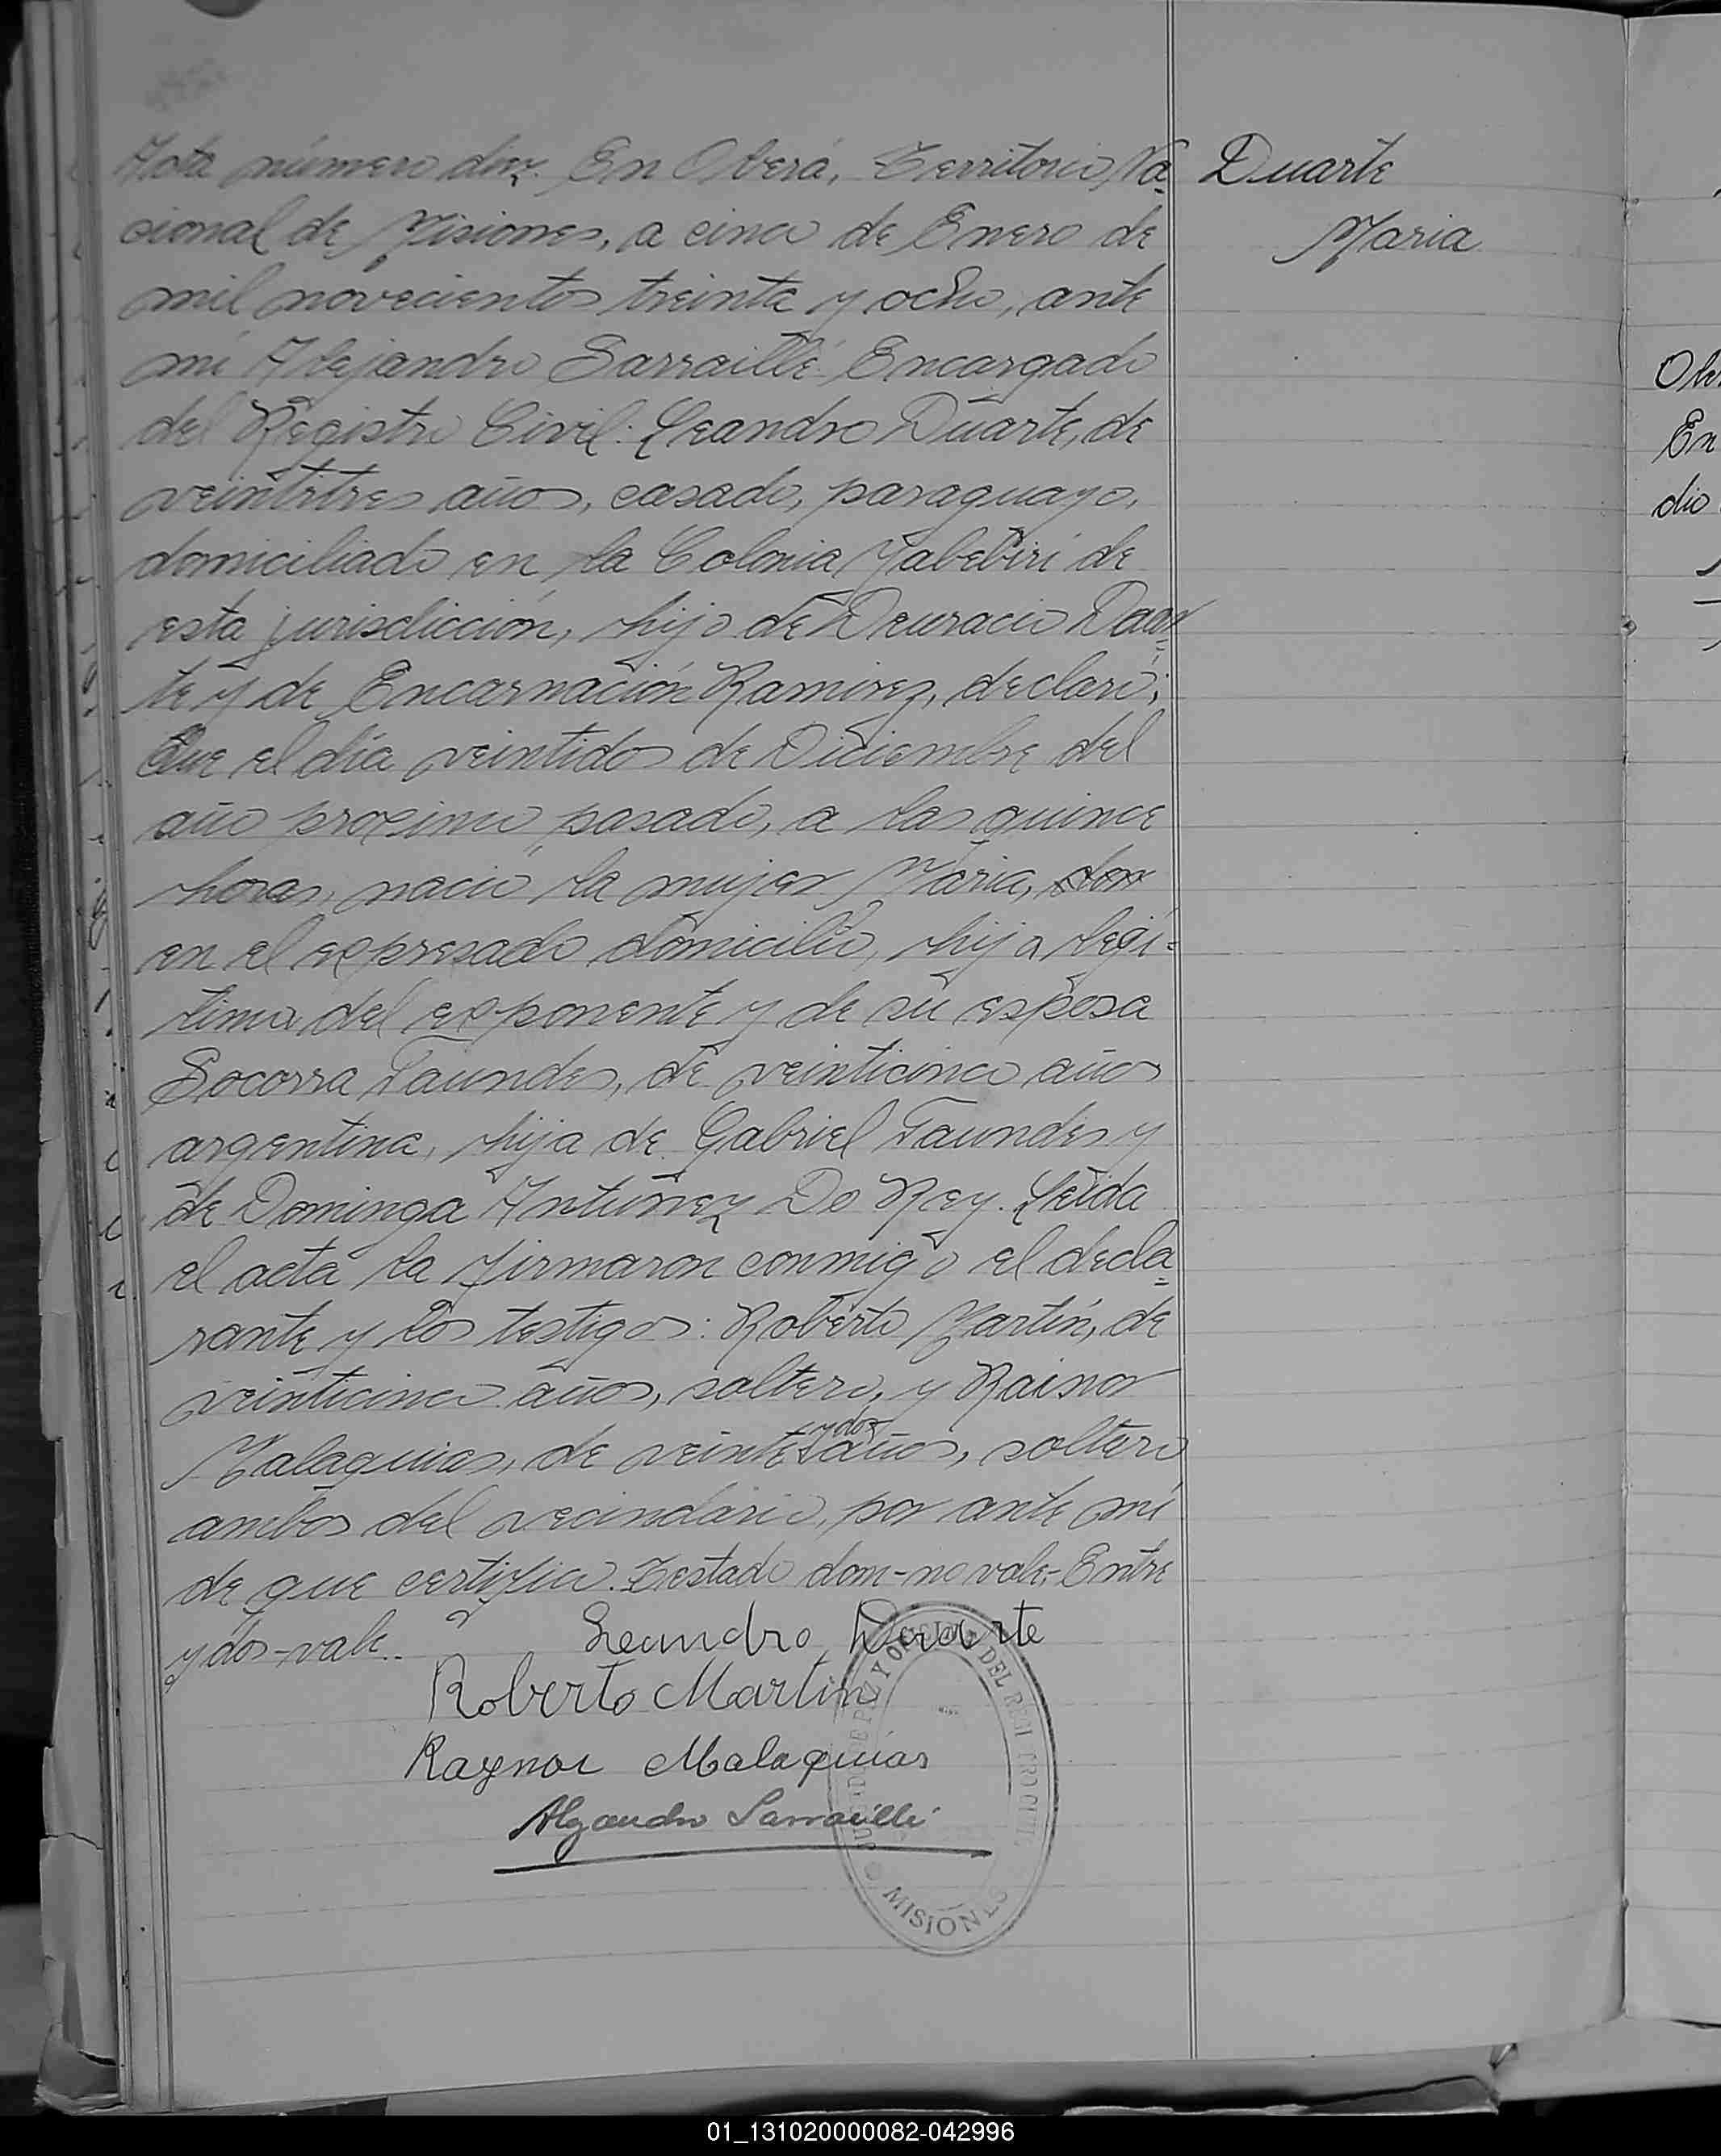 Acta número diez. En Oberá, Territorio Na-
cional de Misiones, a cinco de Enero de
mil novecientos treinta y ocho, ante
mi Alejandro Sarraillé Encargado
del Registro Civil: Leandro Duarte, de
veintitres años, casado, paraguayo,
domiciliado en la Colonia Yabebirí de
esta jurisdicción, hijo de
te y de Encarnación Ramirez, declaró:
Que el día veintidos de Diciembre del
año proximo pasado, a las quince
horas, nació la mujer Maria, dom
en el expresado domicilio, hija legi-
tima del exponente y de su esposa
Socorra Taundes, de veinticinco años
argentina, hija de Gabriel Taundes y
de Dominga Antunez Do Rey. Leída
el acta la firmaron conmigo el decla-
rante y los testigos: Roberto Martín, de
veinticinco años, soltero, y Rainor
Malaquias, de veinte y dos años, soltero
ambos del vecindario, por ante mi
de que certifico. Testado dom-no vale-Entre
y dos-vale..
Leandro Duarte
Roberto Martin
Raynor Malaquias
Alejandro Sarraillé
Duarte
Maria
DE PAZ Y OFICINA DEL REGISTRO CIVIL
MISIONES
Ob
En
dio
01_131020000082-042996